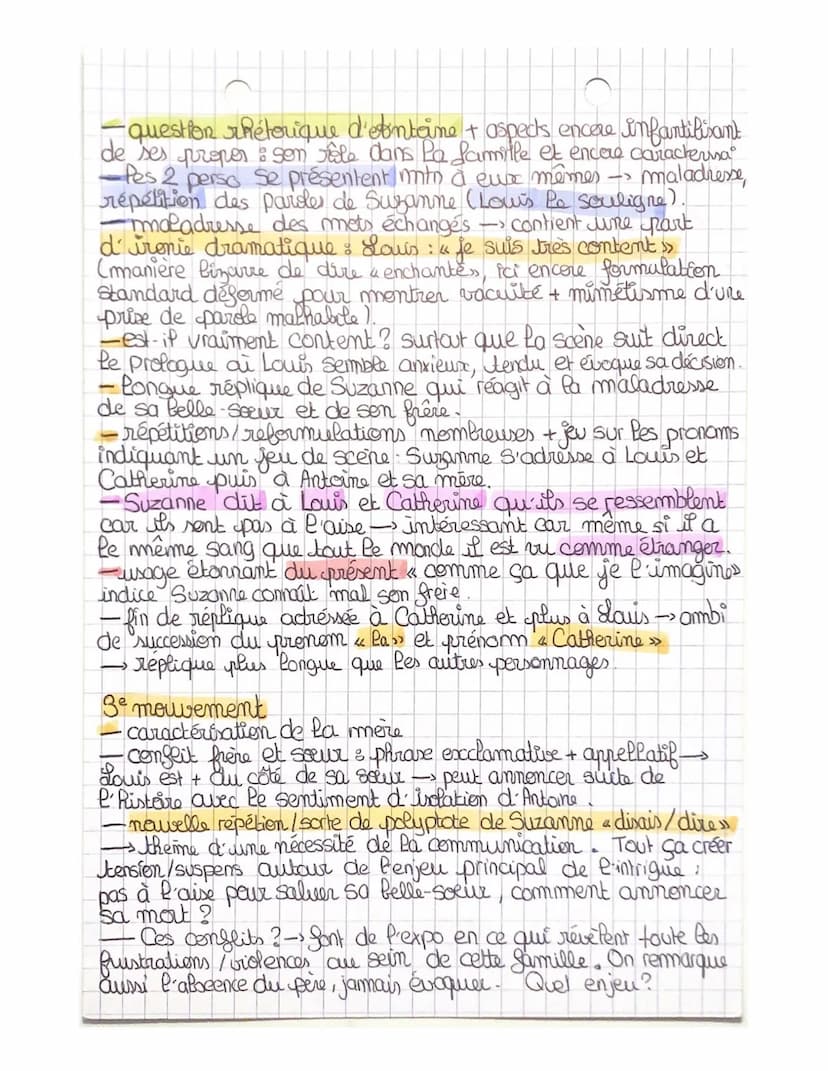 — question rhétorique d'Antoine + aspects encore infantilisant
de ses propos : son rôle dans la famille et encore caractérisa°
— Les 2 perso se présentent mtn à eux mêmes → maladresse,
répétition des paroles de Suzanne (Louis le souligne).
— maladresse des mots échangés → contient une part
d'ironie dramatique : Louis : « je suis très content »
(manière bizarre de dire « enchanté », ici encore formulation
standard déformé pour montrer vacuité + mimétisme d'une
prise de parole malhabile).
— est-il vraiment content ? surtout que la scène suit direct
le prologue où Louis semble anxieux, tendu et évoque sa décision.
— longue réplique de Suzanne qui réagit à la maladresse
de sa belle-soeur et de son frère.
— répétitions / reformulations nombreuses + jeu sur les pronoms
indiquant un jeu de scène : Suzanne s'adresse à Louis et
Catherine puis à Antoine et sa mère.
— Suzanne dit à Louis et Catherine qu'ils se ressemblent
car ils sont pas à l'aise → intéressant car même si il a
le même sang que tout le monde il est vu comme étranger.
— usage étonnant du présent « comme ça que je l'imagine »
indice Suzanne connaît mal son frère.
— fin de réplique adréssée à Catherine et plus à Louis → ambi
de succession du pronom « la » et prénom « Catherine »
→ réplique plus longue que les autres personnages.
3e mouvement
— caractérisation de la mère
— conflit frère et soeur : phrase exclamative + appellatif →
Louis est + du côté de sa soeur → peut annoncer suite de
l'histoire avec le sentiment d'isolation d'Antoine.
— nouvelle répétion / sorte de polyptote de Suzanne « disais / dire »
→ theme d'une nécessité de la communication. Tout ça créer
tension / suspens autour de l'enjeu principal de l'intrigue :
pas à l'aise pour saluer sa belle-soeur, comment annoncer
sa mort ?
— Ces conflits ? → font de l'expo en ce qui révèlent toute les
frustrations / violences au sein de cette famille. On remarque
aussi l'absence du père, jamais évoquer. Quel enjeu ?